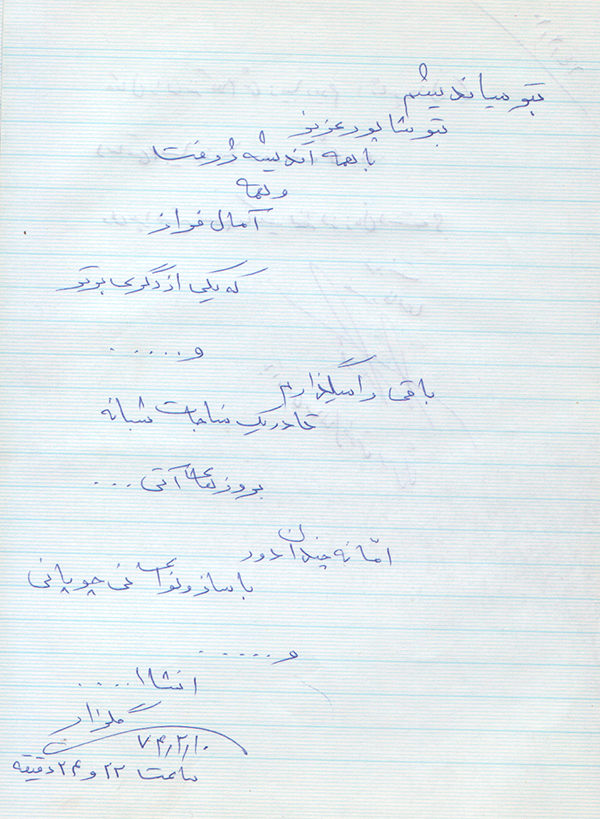 بتو میاندیشم
بتو شاپور عزیز
با همه اندیشه ژرفت
و همه
آمال فراز
که یکی از دگری برتر
و ......
باقی را میگذاریم
تا در یک مناجات شبانه
بروزهای آتی ...
امّا نه چندان دور
با ساز و نوای نی چوپانی
و ......
انشاا ....
گلزار
۷۴٫۲٫۱۰
ساعت ۲۲ و ۲۴ دقیقه